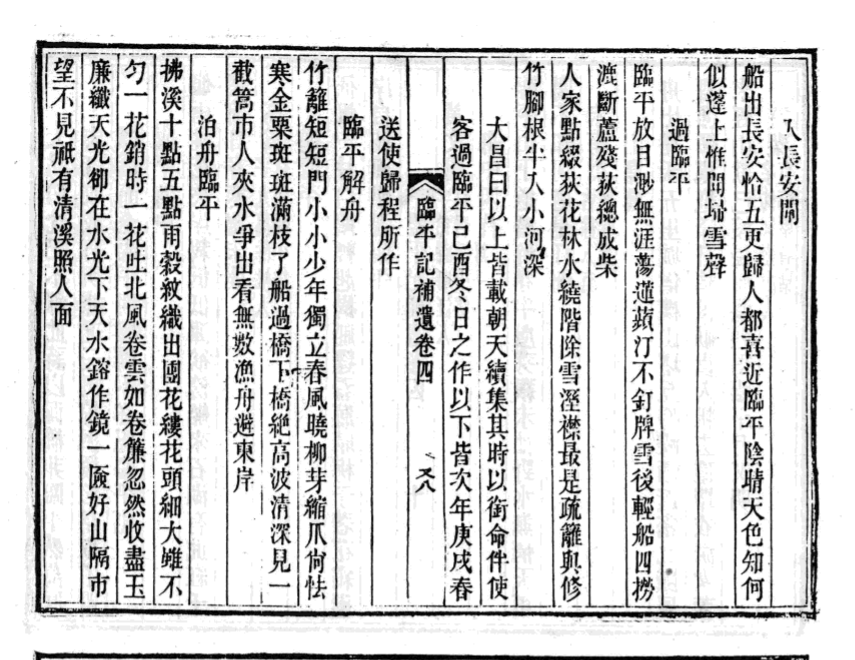 入長安閘
船出長安恰五更歸人都喜近臨平陰晴天色知何
似蓬上惟聞埽雪聲
過臨平
臨平放目渺無涯蕩蓮蘋汀不釘牌雪後輕船四撈
漉斷蘆殘荻總成柴
人家點綴荻花林水繞階除雪溼襟最是疏籬與修
竹腳根半入小河深
大昌曰以上皆載朝天續集其時以銜命件使
客過臨平己酉冬日之作以下皆次年庚戌春
臨平記補遺卷四
又八
送使歸程所作
臨平解舟
竹籬短短門小小少年獨立春風曉柳芽縮爪尙怯
寒金粟斑斑滿枝了船過橋下橋絶高波清深見一
截篙市人夾水爭出看無數漁舟避東岸
泊舟臨平
拂溪十點五點雨縠紋織出團花縷花頭細大雖不
勻一花銷時一花吐北風卷雲如卷簾忽然收盡玉
廉纖天光卻在水光下天水鎔作鏡一匳好山隔市
望不見祗有清溪照人面